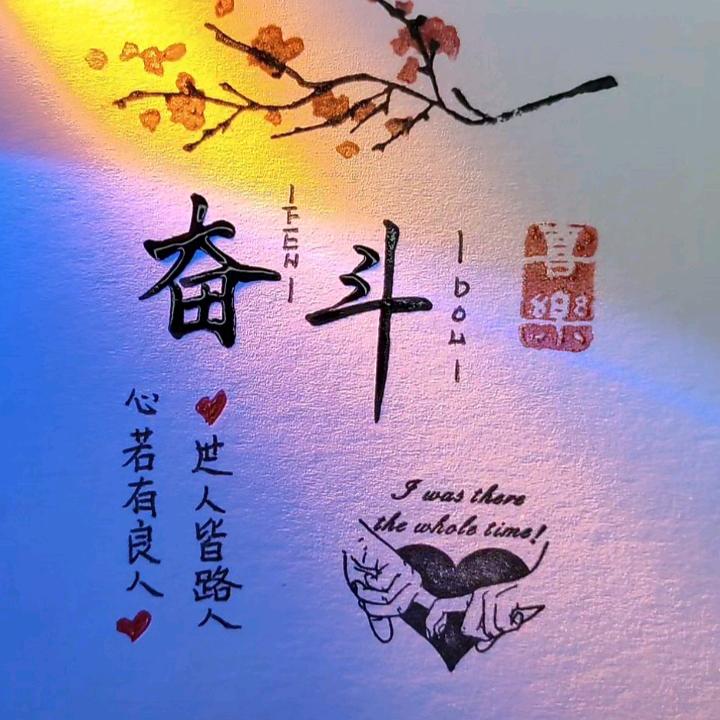 奋斗
FEN
DOU
心若有良人
世人皆路人
I was there
the whole time!